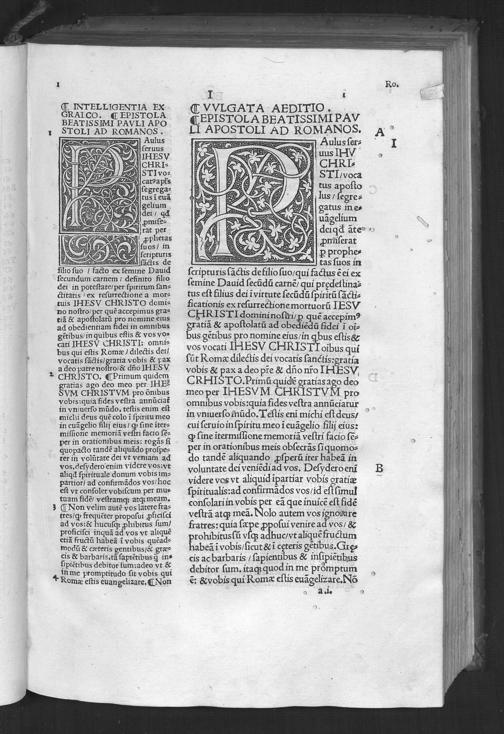 1
I
1
Ro.
¶ INTELLIGENTIA EX
GRAECO. ¶ EPISTOLA
BEATISSIMI PAVLI APO
STOLI AD ROMANOS.
1
P
Aulus
seruus
IHESV
CHRI-
STI vo-
catꝰapꝉs
segrega-
tus ī euā
gelium
dei / qđ
ꝓmise-
rat per
ꝓphetas
suos / in
scripturis
sāctis de
filio suo / facto ex semine Dauid
secundum carnem / definito filio
dei in potestate: per spiritum san-
ctitatis / ex resurrectione a mor-
tuis IHESV CHRISTO domi-
no nostro: per quē accepimus gra-
tiā & apostolatū pro nomine eius
ad obedientiam fidei in omnibus
gētibus: in quibus estis & vos vo-
cati IHESV CHRISTI: omni-
bus qui estis Romæ / dilectis dei /
vocatis sāctis: gratia vobis & pax
a deo patre nostro & dño IHESV
2 CHRISTO. ¶ Primum quidem
gratias ago deo meo per IHE-
SVM CHRISTVM pro ōnibus
vobis: quia fides vestra annūciat̃
in vniuerso mūdo. testis enim est
michi deus quē colo ī spiritu meo
in euāgelio filij eius / q̄ sine inter-
missione memoriā vestri facio sē-
per in orationibus meis: rogās si
quopacto tandē aliquādo prospe-
rer in volūtate dei vt veniam ad
vos. desydero enim videre vos: vt
aliqđ spirituale donum vobis im-
partior / ad confirmādos vos / hoc
est vt consoler vobiscum per mu-
tuam fidē / vestramqꝫ atqꝫ meam.
3 ¶ Non velim autē vos latere fra-
tres / q̄ frequēter proposui ꝓficisci
ad vos: & hucusqꝫ ꝓhibitus sum /
proficisci inquā ad vos vt aliquē
etiā fructū habeā ī vobis quēad-
modū & cæteris gentibus / & græ-
cis & barbaris. tā sapiētibus q̄ in-
sipiētibus debitor sum: adeo vt &
in me promptitudo sit vobis qui
4 Romæ estis euangelizare. ¶ Non
¶ VVLGATA AEDITIO.
¶ EPISTOLA BEATISSIMI PAV
LI APOSTOLI AD ROMANOS.
A
I
P
Aulus ser-
uus IHV
CHRI-
STI / voca
tus aposto
lus / segre-
gatus in e-
uāgelium
dei qđ āte
ꝓmiserat
p prophe-
tas suos in
scripturis sāctis de filio suo / qui factus ē ei ex
semine Dauid secūdū carnē / qui prędestina-
tus est filius dei ī virtute secūdū spiritū sācti-
ficationis ex resurrectione mortuorū IESV
CHRISTI domini nostri / p quē accepimꝰ
gratiā & apostolatū ad obediēdū fidei ī oi-
bus gētibus pro nomine eius / in q̄bus estis &
vos vocati IHESV CHRISTI oibus qui
sūt Romæ dilectis dei vocatis sanctis: gratia
vobis & pax a deo pr̄e & dño nr̄o IHESV
CRHISTO. Primū quidē gratias ago deo
meo per IHESVM CHRISTVM pro
omnibus vobis: quia fides vestra annūciatur
in vniuerso mūdo. Testis eni michi est deus /
cui seruio in spiritu meo ī euāgelio filij eius:
q̄ sine itermissione memoriā vestri facio sē-
per in orationibus meis obsecrās si quomo-
do tandē aliquando ꝓsperū iter habeā in
B
voluntate dei veniēdi ad vos. Desydero enī
videre vos vt aliquid ipartiar vobis gratiæ
spiritualis: ad confirmādos vos / id est simul
consolari in vobis per eā quę inuicē est fidē
vestrā atqꝫ meā. Nolo autem vos ignorare
fratres: quia sæpe ꝓposui venire ad vos / &
prohibitus sū vsqꝫ adhuc / vt aliquē fructum
habeā ī vobis / sicut & ī cęteris gētibus. Gre-
cis ac barbaris / sapientibus & insipiētibus
debitor sum. itaqꝫ quod in me prōmptum
ē: & vobis qui Romæ estis euāgelizare. Nō
a.i.